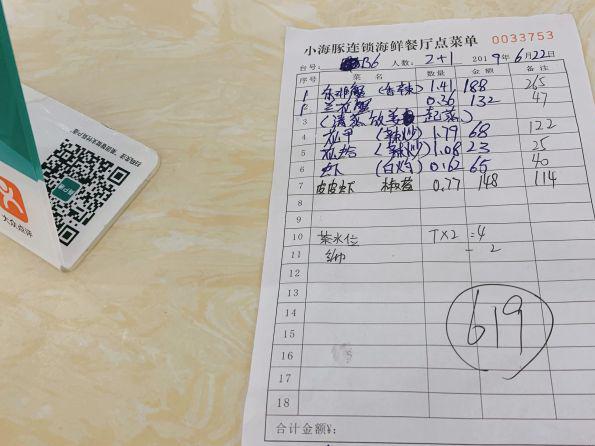 小海豚连锁海鲜餐厅点菜单 0033753
台号: B6 人数: 2+1 2019年6月22日
序号 菜名 数量 金额 备注
1 东非蟹 (香辣) 1.41 188 265
2 兰花蟹 0.36 132 47
3 (清蒸 放姜 一起蒸)
4 花甲 (辣炒) 1.79 68 122
5 花蛤 (辣炒) 1.08 23 25
6 虾 (白灼) 0.62 65 40
7 皮皮虾 椒盐 0.77 148 114
8
9
10 茶水位 T×2 =4
11 纸巾 - 2
12
13
14
15
16
17
18
619
合计金额¥:
大众点评